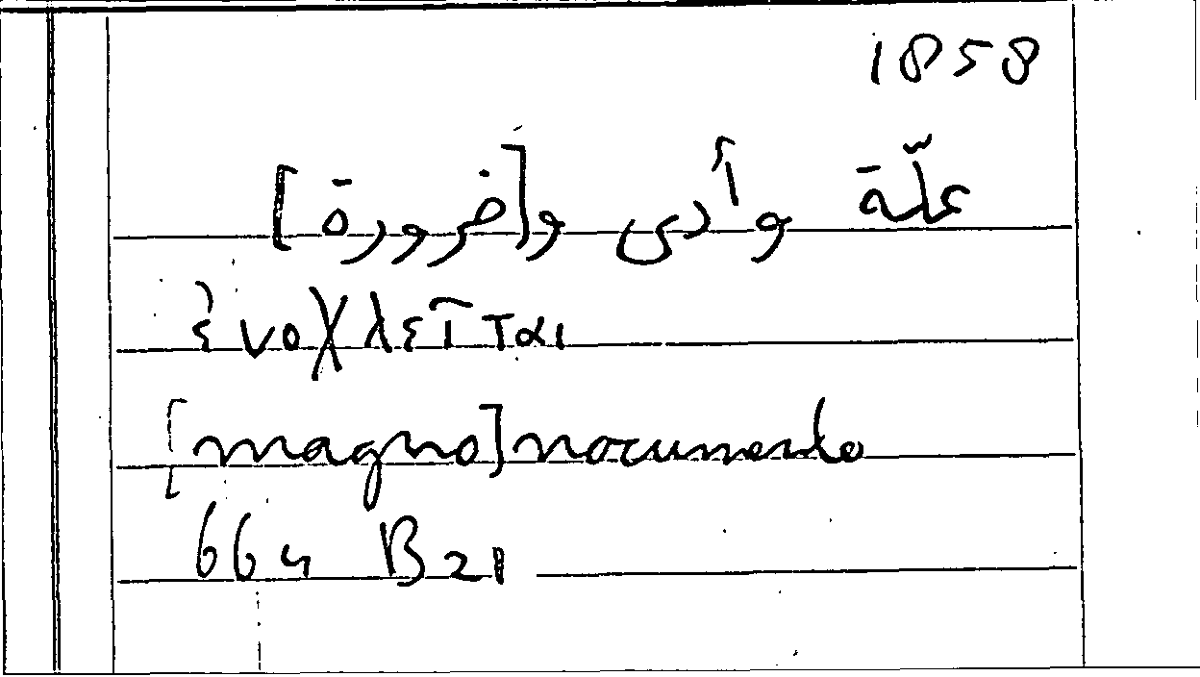 1858
علّة وأدى و[ضرورة]
ἐνοχλεῖται
[magno] nocumento
664 B21